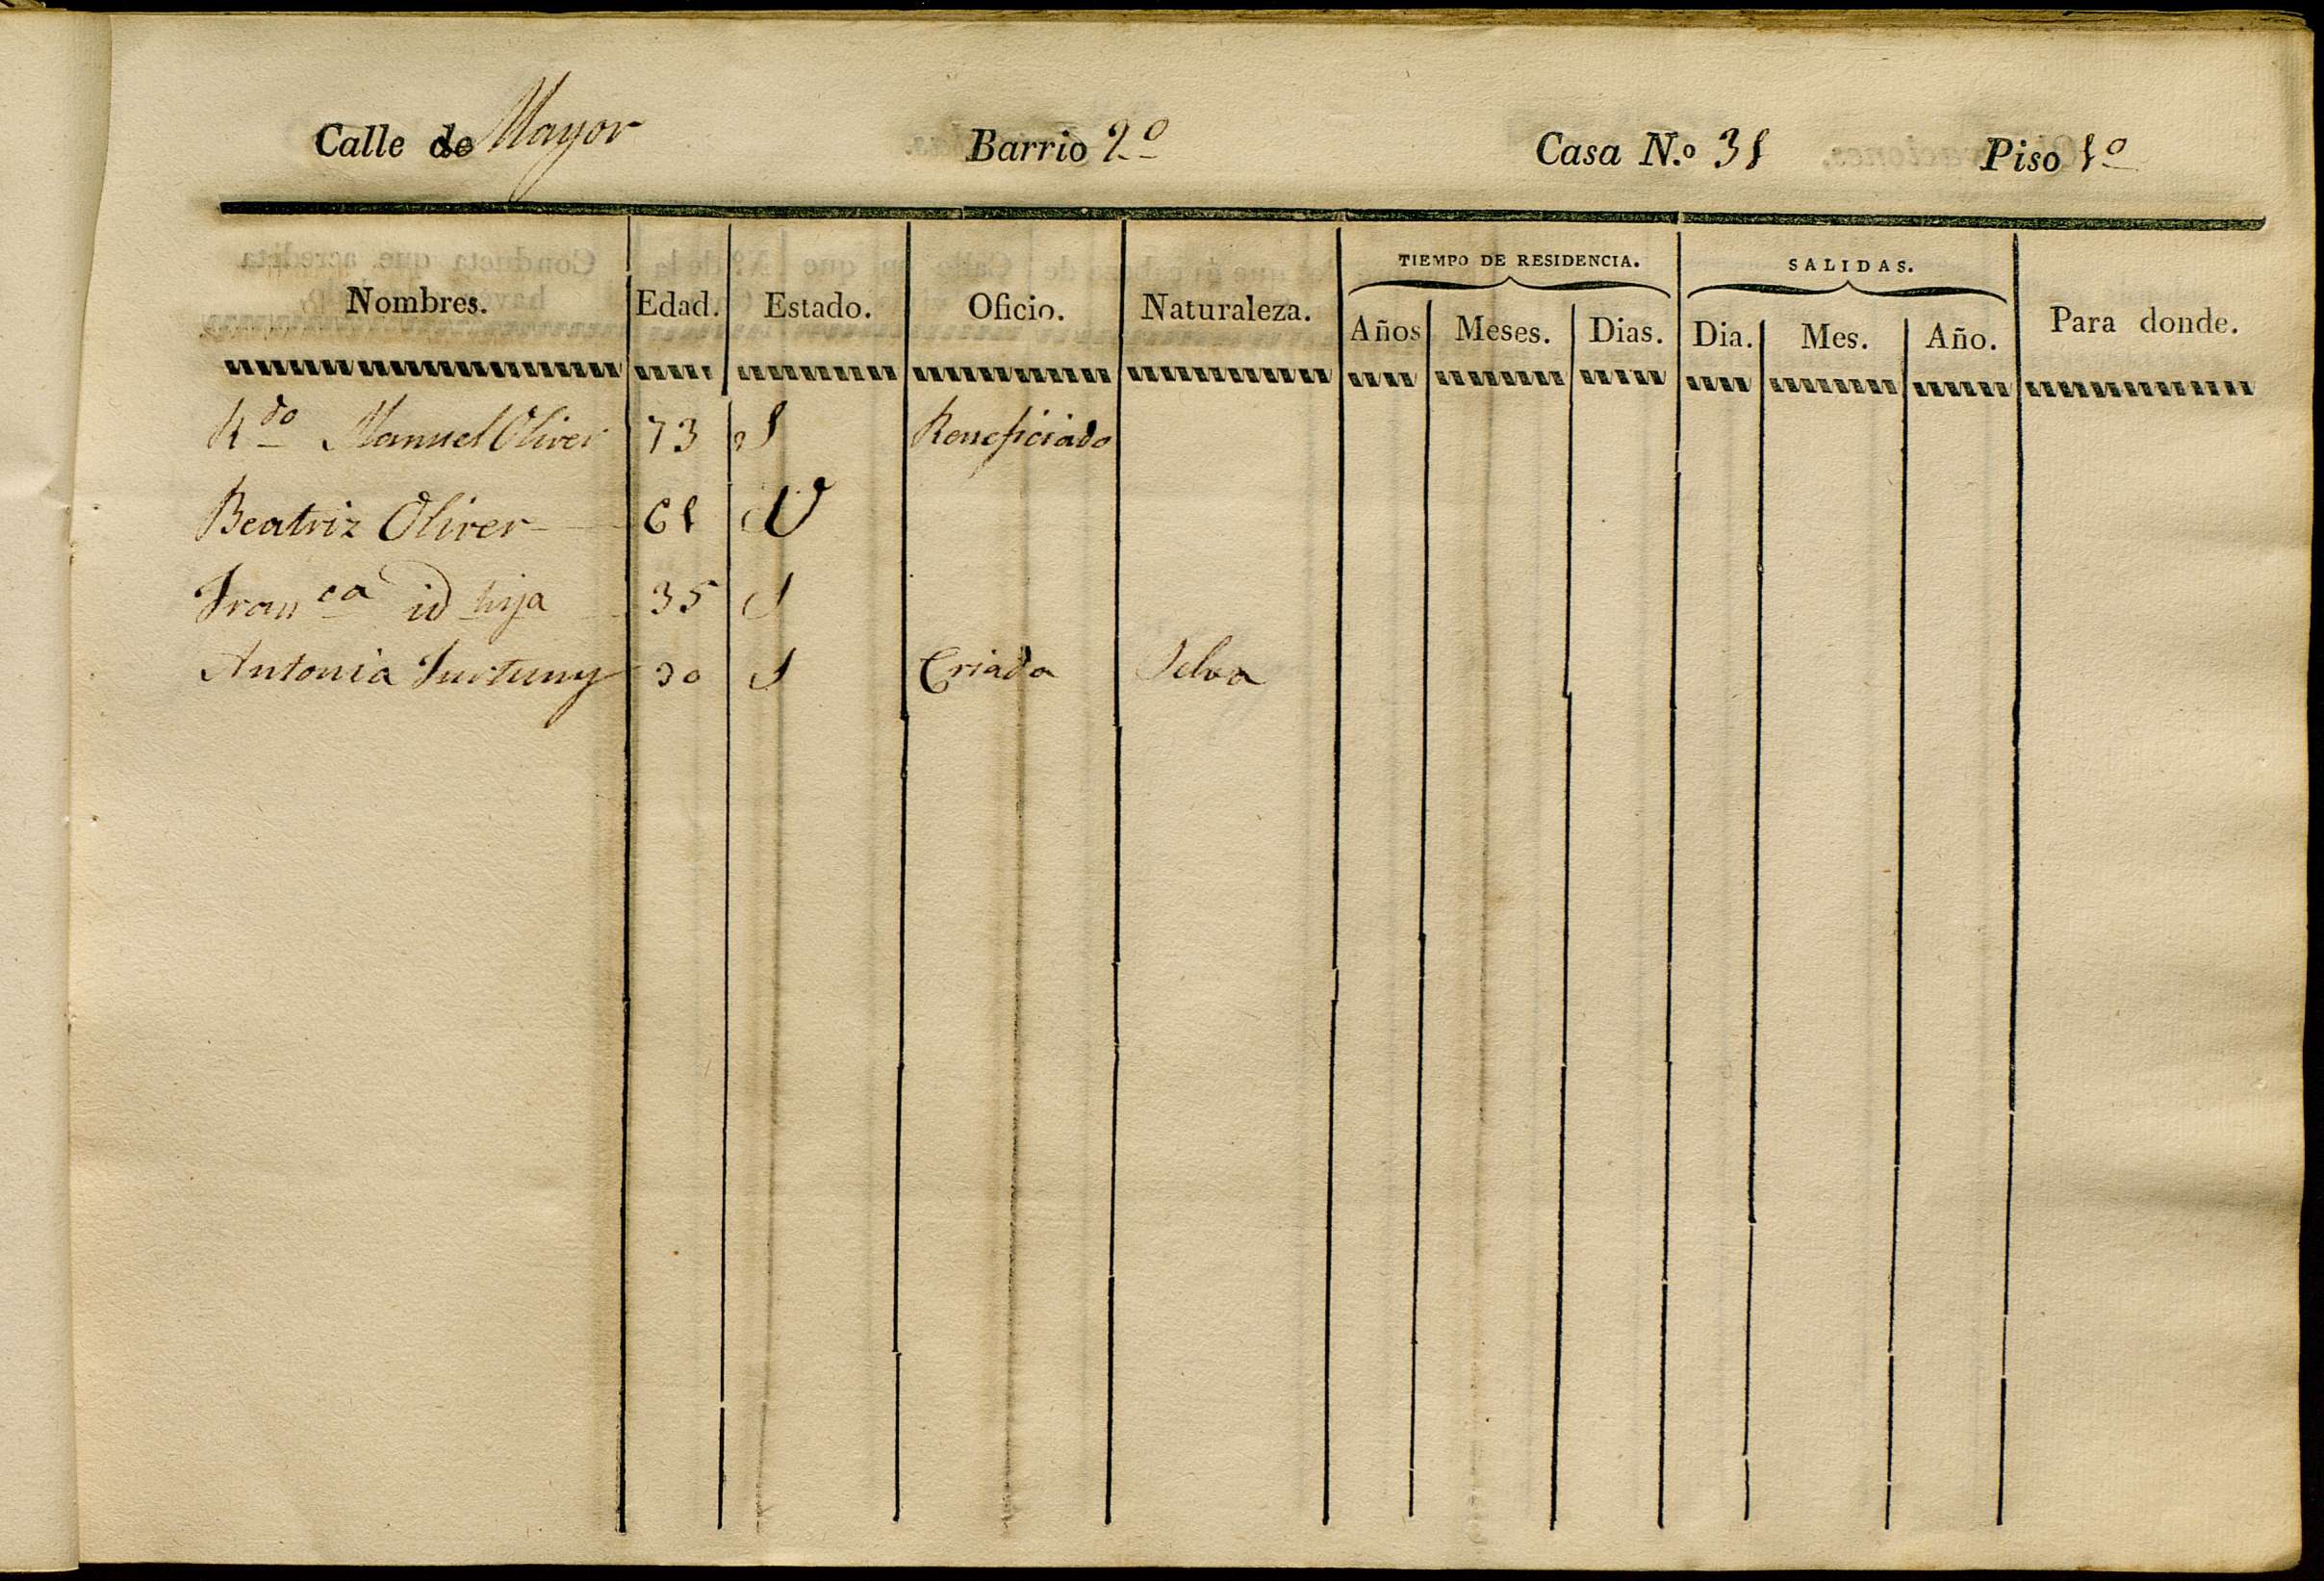 Calle de Mayor Barrio 2º Casa N.º 31 Piso 1º
TIEMPO DE RESIDENCIA. SALIDAS.
Nombres. Edad. Estado. Oficio. Naturaleza. Años Meses. Dias. Dia. Mes. Año. Para donde.
Rdo Manuel Oliver 73 S Beneficiado
Beatriz Oliver 61 V
Franca id hija 35 S
Antonia Furtuny 30 S Criada Selva